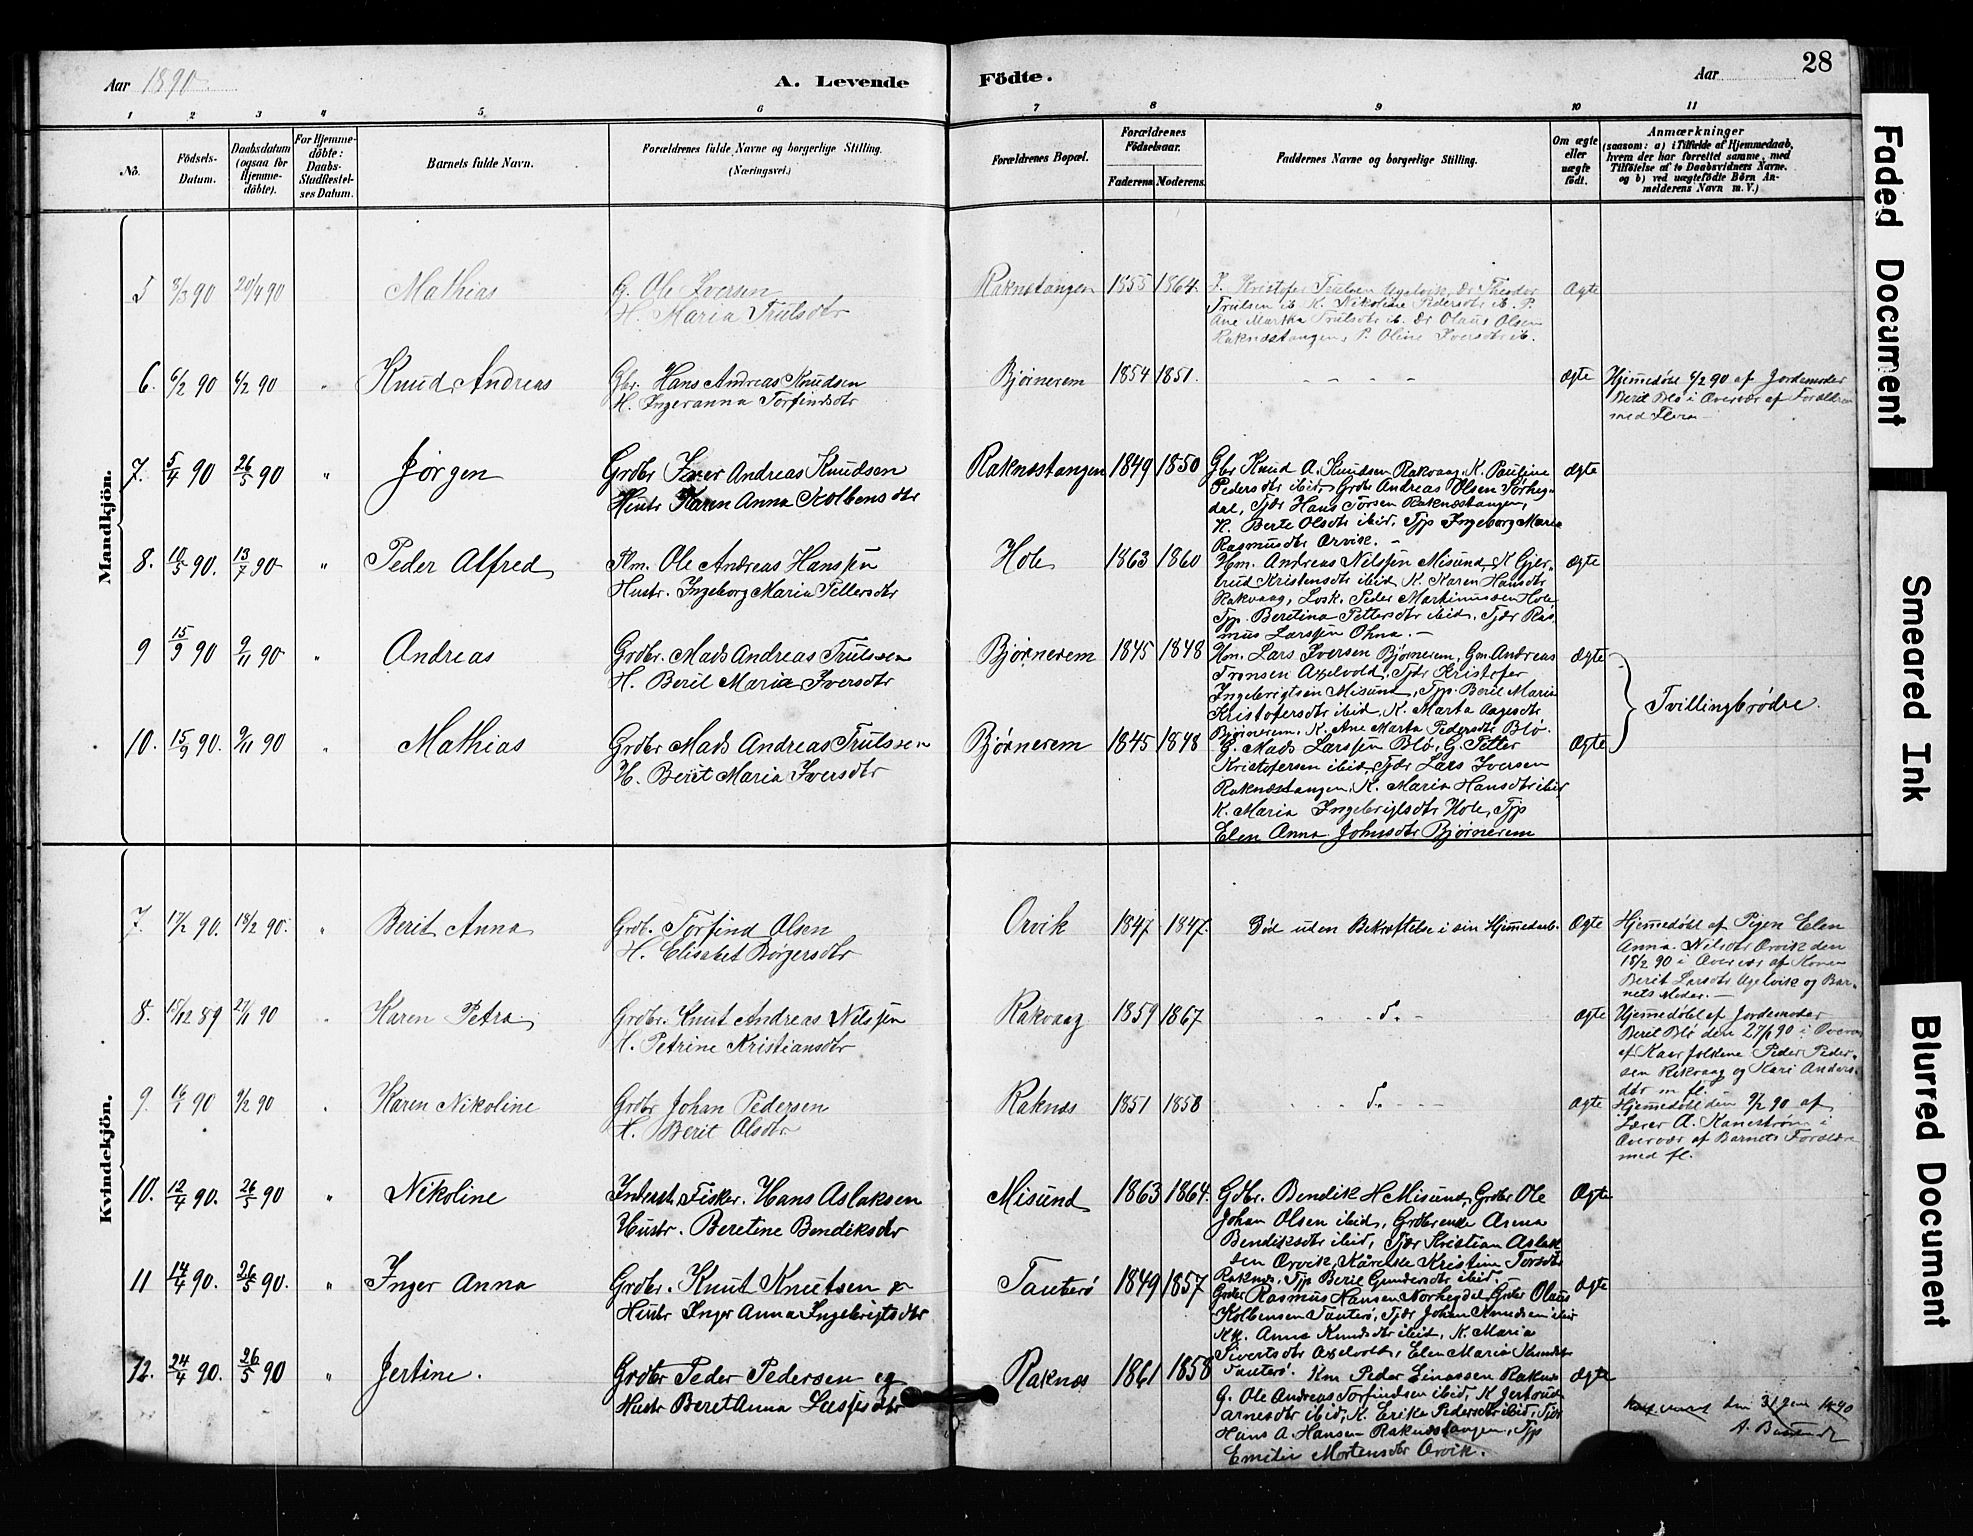 Aar 1890.
A. Levende Födte.
Aar
28
1 2 3 4 5 6 7 8 9 10 11
No.
Födsels-Datum.
Daabsdatum (ogsaa for Hjemmedöbte).
For Hjemmedöbte: Daabs Stadfestelses Datum.
Barnets fulde Navn.
Forældrenes fulde Navne og borgerlige Stilling. (Næringsvei.)
Forældrenes Bopæl.
Forældrenes Födselsaar.
Faderens. Moderens.
Faddernes Navne og borgerlige Stilling.
Om ægte eller uægte födt.
Anmærkninger
(saasom: a) i Tilfælde af Hjemmedaab, hvem der har forrettet samme, med Tilföielse af to Daabsvidners Navne. og b) ved uægtefödte Börn Anmelderens Navn m. V.)
Mandkjön.
5 8/3 90 20/4 90 Mathias
G. Ole Iversen
H. Maria Trulsdtr
Raknestangen 1855 1864.
Kristofer Trulsen Ugelvik, Dr Theodor
Trulsen ib. K. Nikoline Pedersdtr ib. P.
Ane Martha Trulsdtr ib. Dr Olaus Olsen
Raknestangen, P. Oline Iversdtr ib.
Ægte
6. 6/2 90 6/2 90 " Knud Andreas
Gbr. Hans Andreas Knudsen
H. Ingeranna Torfindsdtr
Bjørnerem 1854 1851.
- - - -
Ægte
Hjemmedöbt 6/2 90 af Jordemoder
Berit Blø i Overvær af Forældrene
med Flere -
7. 5/4 90 26/5 90 " Jørgen
Grdbr Iver Andreas Knudsen
Hustr Karen Anna Kolbensdtr
Raknestangen 1849 1850
Gbr Knud A. Knudsen Rakvaag, K. Pauline
Pedersdtr ibid, Grdbr Andreas Olsen Sørheg-
dal, Tjdr Hans Torsen Raknestangen,
K. Berte Olsdtr ibid, Tjp Ingeborg Maria
Rasmusdtr Orvik. -
Ægte
8. 10/5 90. 13/7 90 " Peder Alfred
Ole Andreas Hanssen
Hustr. Ingeborg Maria Pettersdtr
Hole 1863 1860
Hm. Andreas Nilssen Misund, K Gjer-
trud Kristensdtr ibid K. Karen Hansdtr
Rakvaag, Losk. Peder Martinussen Hole
Tjp. Beretina Pettersdtr ibid, Tjdr Ras-
mus Larssen Ohna. -
Ægte
9 15/9 90 9/11 90 " Andreas
Grdbr. Mads Andreas Trulssen
H. Berit Maria Iversdtr
Bjørnerem 1845 1848
Hm. Lars Iversen Bjørnerem, Gm. Andreas
Tronsen Axelvold, Tjdr Kristofer
Ingebrigtsen Misund, Tjp. Berit Maria
Kristofersdtr ibid, K. Marta Aagesdtr
Bjørnerem, K. Ane Marta Pedersdtr Blø.
Ægte
Tvillingbrødre.
10. 15/9 90. 9/11 90 Mathias
Grdbr Mads Andreas Trulssen
H. Berit Maria Iversdtr
Bjørnerem 1845 1848
G. Mads Larssen Blø, G. Petter
Kristofersen ibid, Tjdr Lars Iversen
Raknestangen, K. Maria Hansdtr ibid,
K. Maria Ingebrigtsdtr Hole, Tjp
Elen Anna Johnsdtr Bjørnerem
Ægte
Kvindekjön.
7. 17/2 90. 18/2 90. " Berit Anna
Grdb. Torfind Olsen
H. Elisabet Børgersdtr
Orvik 1847 1847.
Død uden Bekræftelse i sin Hjemmedaab.
Ægte
Hjemmedöbt af Pigen Elen
Anna Nilsdtr Orvik den
18/2 90 i Overvær af Konen
Berit Larsdtr Ugelvik og Bar-
nets Moder. -
8. 15/12 89 27/1 90 Karen Petra
Grdbr. Knut Andreas Nilssen
H. Petrine Kristiansdtr
Rakvaag 1859 1867
- - d. -
Ægte
Hjemmedöbt af Jordemoder
Berit Blø den 27/1 90 i Overvær
af Kaarfolkene Peder Peder-
sen Rakvaag og Kari Anders-
dtr m fl.
9. 90 9/2 90 Karen Nikoline
Grdbr Johan Pedersen
H. Berit Olsdtr
Raknes 1851 1858
- - - d. - - -
Ægte
Hjemmedöbt den 9/2 90 af
Lærer A. Kanestrøm i
Overvær af Barnets Forældre
med fl.
10. 12/4 90. 26/5 90 " Nikoline
Inderst. Fisker. Hans Aslaksen
Hustr. Beretine Bendiksdtr
Misund 1863 1864.
Gdbr. Bendik H Misund, Grdbr Ole
Johan Olsen ibid, Grdbrenke Anna
Bendiksdtr ibid, Tjdr Kristian Aslak-
sen Orvik, Kårenke Kristine Torsdtr
Raknes, Tjp Berit Gundersdtr ibid.
Ægte
11 14/4 90. 26/5 90. " Inger Anna
Grdbr. Knut Knutsen &
Hustr Inger Anna Ingebrigtsdtr
Tauterø 1849 1857
Grdbr Rasmus Hansen Norhegdal, Grdbr Olaus
Kolbensen Tauterø, Tjdr Johan Knudsen ibid
KK. Anne Knudsdtr ibid, K. Maria
Sivertsdtr Axelvold, Elen Maria Knudsdtr
Tauterø.
Ægte
12. 24/4 90. 26/5 90 " Jertine.
Grdbr Peder Pedersen og
Hustr Beret Anna
Raknes 1861 1858
Hm Peder Einassen Raknes
G. Ole Andreas Torfindsen ibid, K Jertrud
Arnesdtr ibid, K. Erike Pedersdtr ibid, Tjdr
Hans A. Hansen Raknestangen, Tjp
Emilie Mortensdtr Orvik.
Ægte
den 31 1890
Faded Document
Smeared Ink
Blurred Document